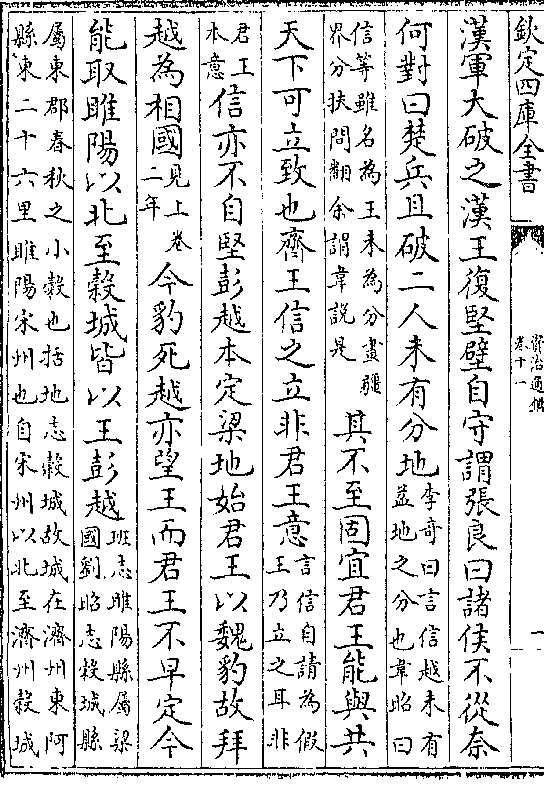 欽定四庫全書
資治通鑑
卷十一
一
漢軍大破之漢王復堅壁自守謂張良曰諸侯不從奈
何對曰楚兵且破二人未有分地李奇曰言信越未有益地之分也韋昭曰
信等雖名為王未為分畫疆界分扶問翻余謂韋說是其不至固宜君王能與共
天下可立致也齊王信之立非君王意言信自請為假王乃立之耳非
君王本意信亦不自堅彭越本定梁地始君王以魏豹故拜
越為相國見上卷二年今豹死越亦望王而君王不早定今
能取睢陽以北至穀城皆以王彭越班志睢陽縣屬梁國劉昭志穀城縣
屬東郡春秋之小穀也括地志穀城故城在濟州東阿
縣東二十六里睢陽宋州也自宋州以北至濟州穀城